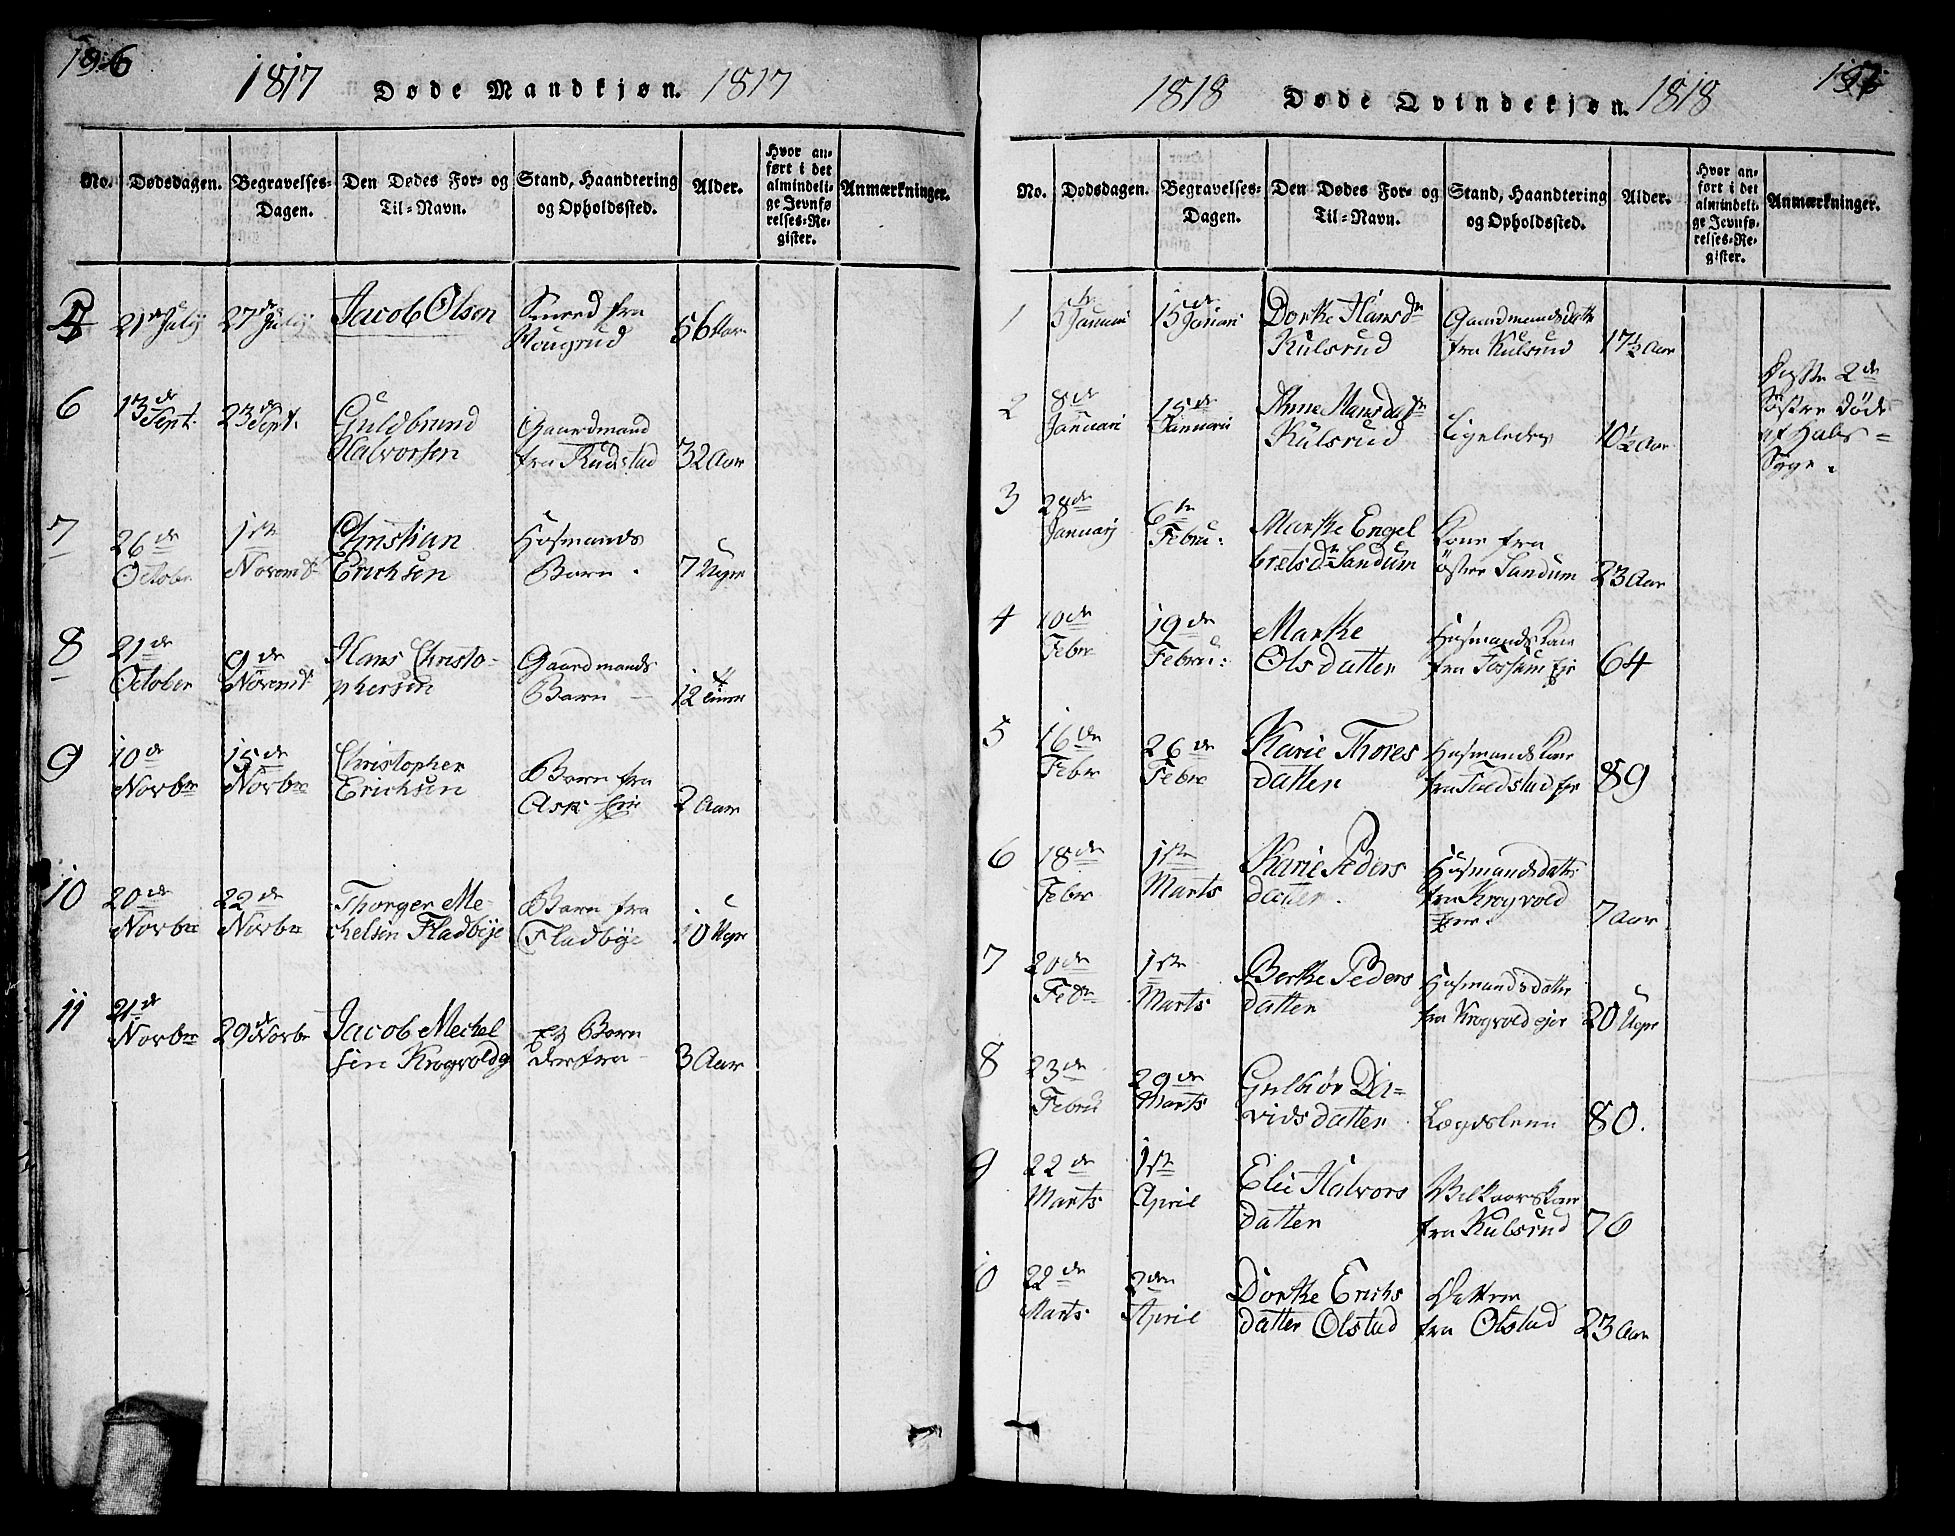 196
1817 Døde Mandkjøn. 1817
No. Dødsdagen. Begravelses-Dagen. Den Dødes For- og Til-Navn. Stand, Haandtering og Opholdssted. Alder. Hvor anført i det almindelige Jevnførelses-Register. Anmærkninger.
5 21de Julij 27de Julij Jacob Olsen Smed fra
Haugrud 56 Aar
6 13de Sept. 23de Sept. Guldbrand
Halvorsen Gaardmand
fra Rudstad 32 Aar
7 26de
October 1ste
Novemb. Christian
Erichsen Huusmands
Barn. 7 Uger
8 21de
October 9de
Novemb. Hans Christo-
phersen Gaardmands
Barn 12 Timer
9 10de
Novbr 15de
Novbr Christopher
Erichsen Barn fra
Ask Eie 2 Aar
10 20de
Novbr 22de
Novbr Thorger Me-
chelsen Fladbye Barn fra
Fladbye 10 Uger
11 21de
Novbr 29de Novbr Jacob Mechel
sen Krogvold Et Barn
derfra 3 Aar
197
1818 Døde Qvindekjøn. 1818
No. Dødsdagen. Begravelses-Dagen. Den Dødes For- og Til-Navn. Stand, Haandtering og Opholdssted. Alder. Hvor anført i det almindelige Jevnførelses-Register. Anmærkninger.
1 5te Januari 15de Januari Dorthe Hansdr
Kulsrud Gaardmandsdatter
fra Kulsrud 17½ Aar
2 8de
Januari 15de
Januari Anne Hansdatr
Kulsrud Ligeledes 10½ Aar Disse 2de
Søstre døde
af Hals-
Syge.
3 28de
Januarj 6te
Febru: Marthe Engel
bretsdr Sandum Kone fra
østre Sandum 23 Aar
4 10de
Febr 19de
Febru: Marthe
Olsdatter Huusmandskone
fra Fossum Eje 64
5 16de
Febr 26de
Febr Karie Thores
datter Huusmandskone
fra Fladstad Eje 89
6 18de
Febr 1ste
Marts Karie Peders
datter. Huusmandsdatter
fra Krogvold
Eje. 7 Aar
7 20de
Febr 1ste
Marts Berthe Peders
datter Huusmandsdatter
fra Krogvold ejer 20 Uger
8 23de
Febru 29de
Marts Gulbiør Da-
vidsdatter Lægdslem 80.
9 22de
Marts 1ste
April Elie Halvors
datter Vilkaarskone
fra Kulsrud 76
10 22de
Marts 2den
April Dorthe Erichs
datter Olstad Datter
fra Olstad 23 Aar